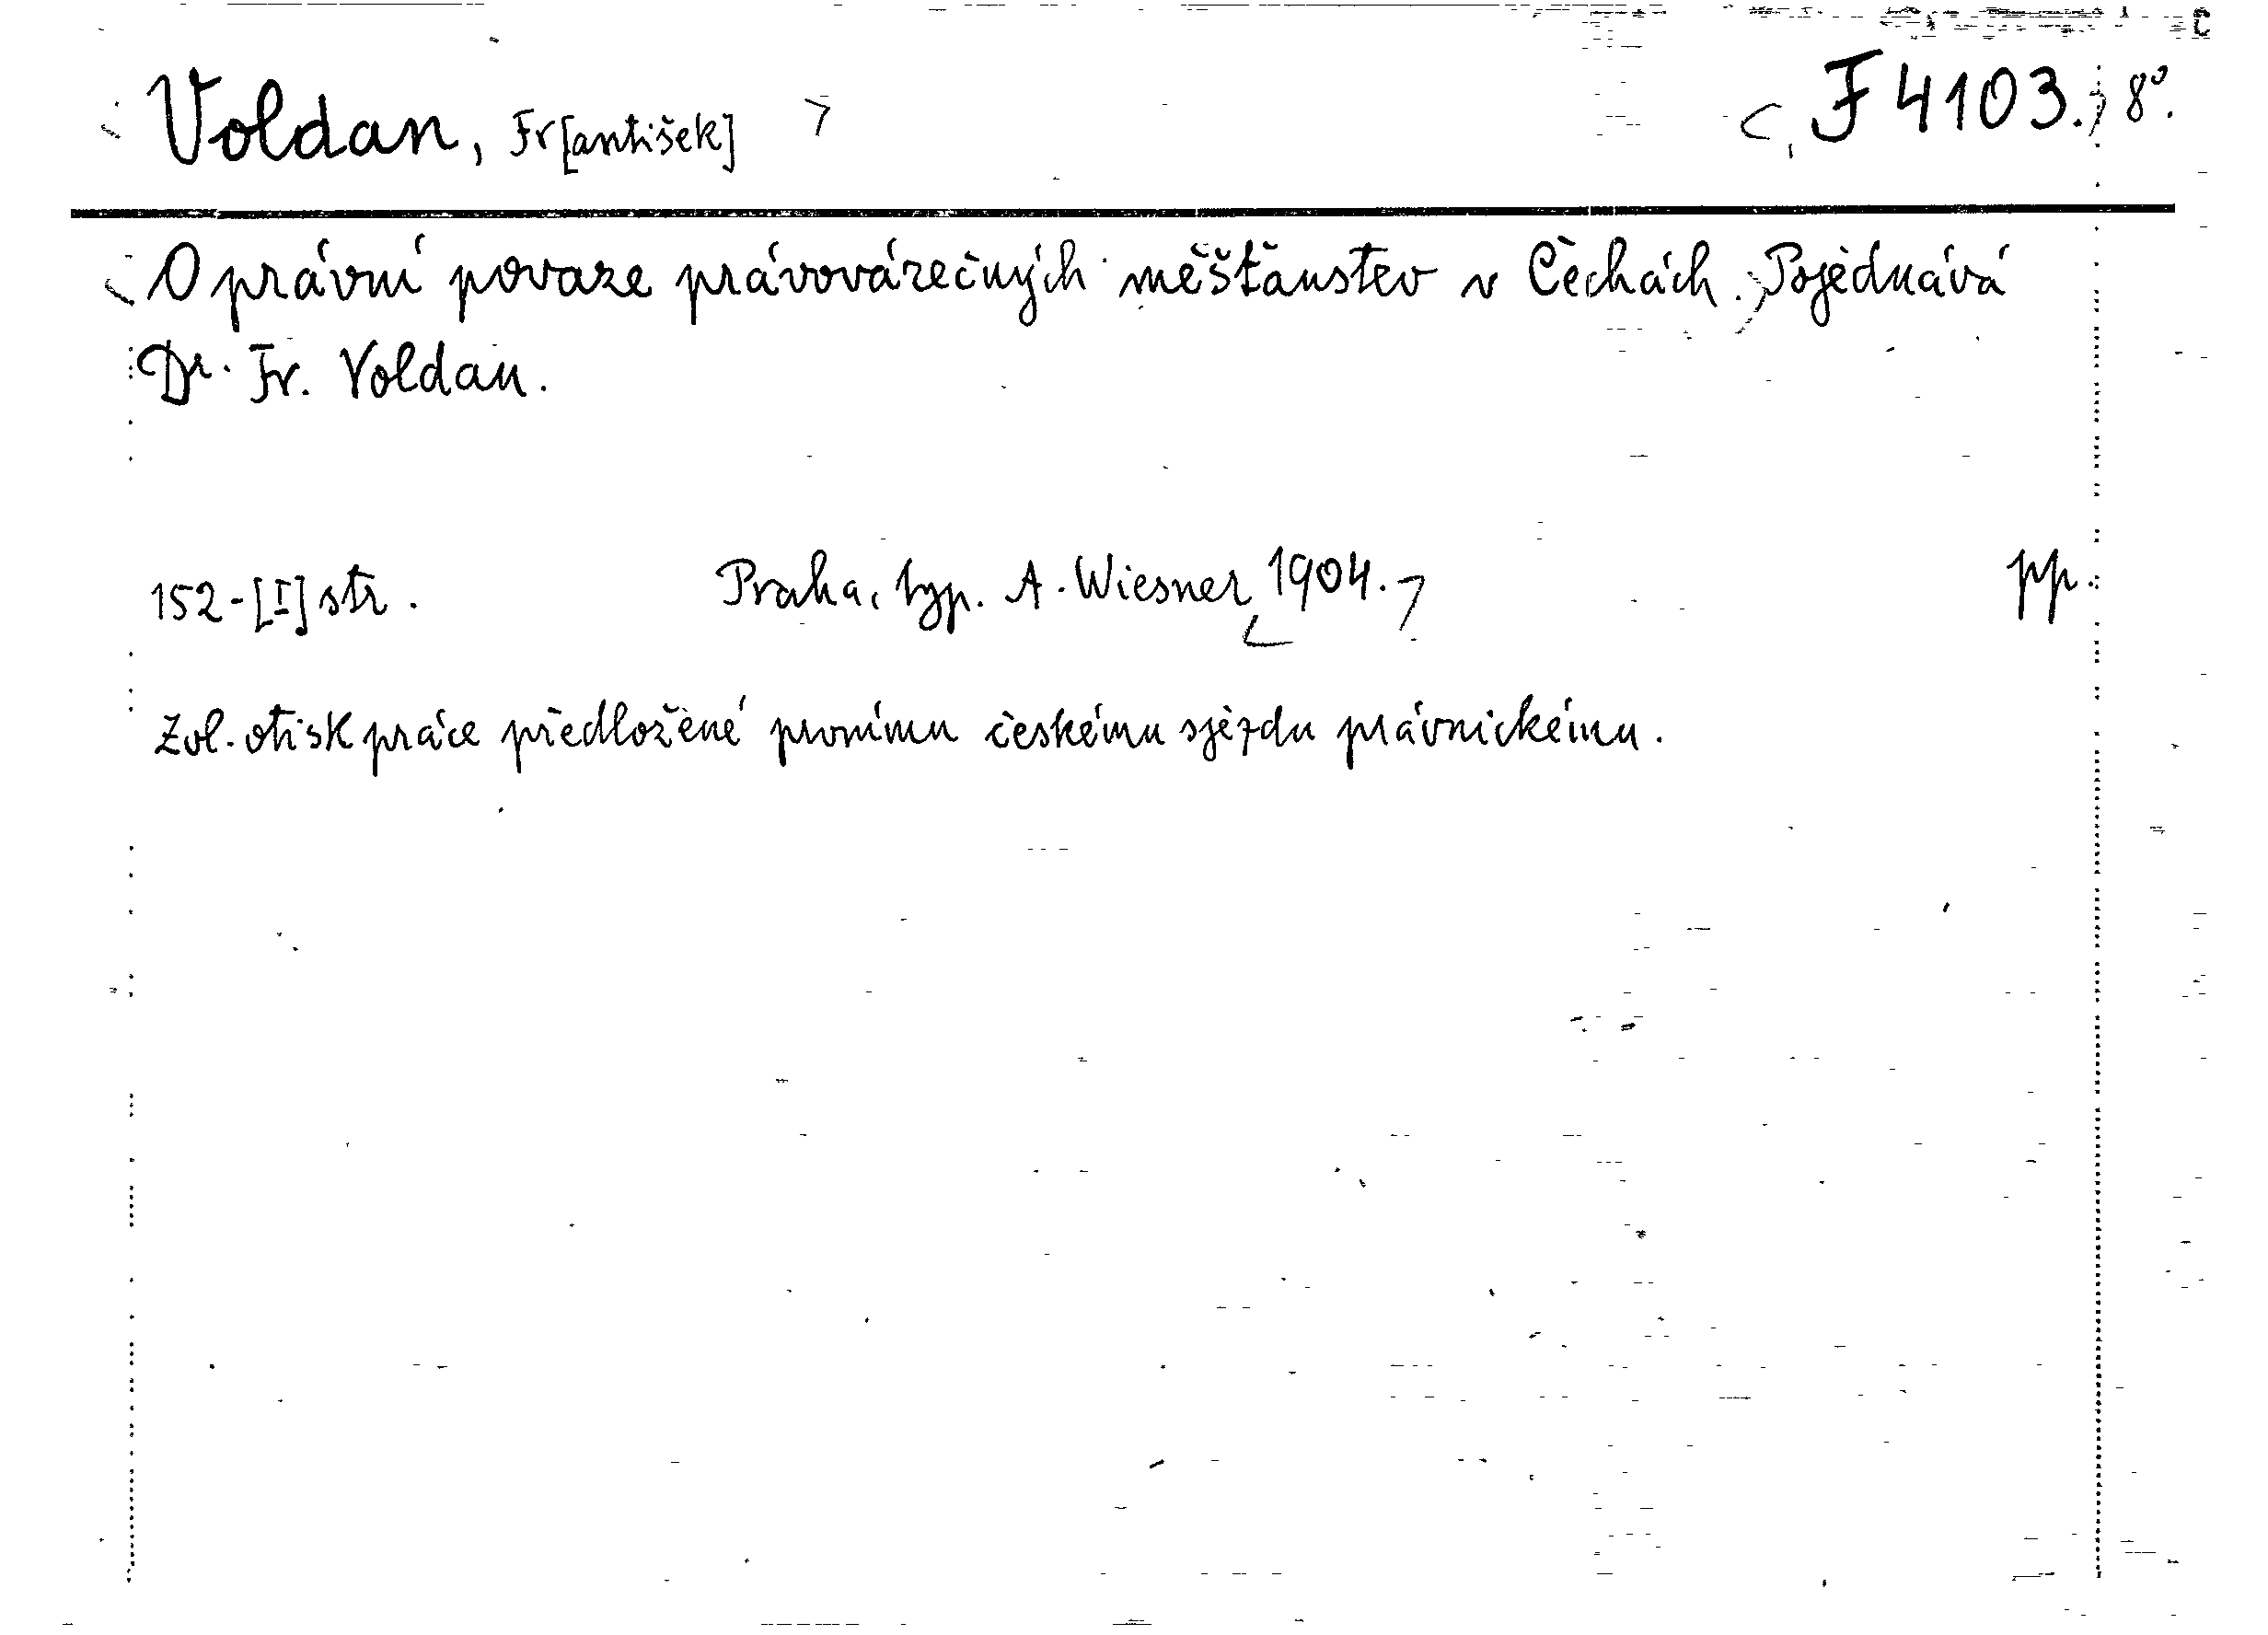 Voldan, Fr[antišek] F 4103. 8°.
O právní povaze právovárečných měšťanstev v Čechách. Pojednává
Dr. Fr. Voldan.
152-[I] str. Praha, typ. A. Wiesner 1904. pp.
Zvl. otisk práce předložené prvnímu českému sjezdu právnickému.